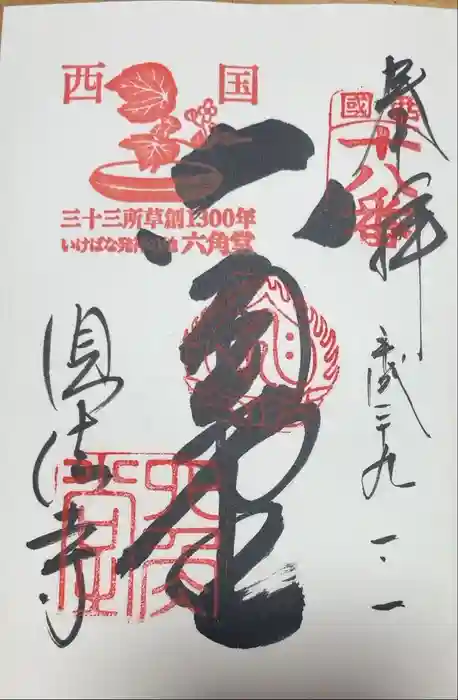 西国
三十三所草創1300年
いけばな発祥の地 六角堂
西國
十八番
奉拝
平成二十九
一、一
六角堂
頂法寺